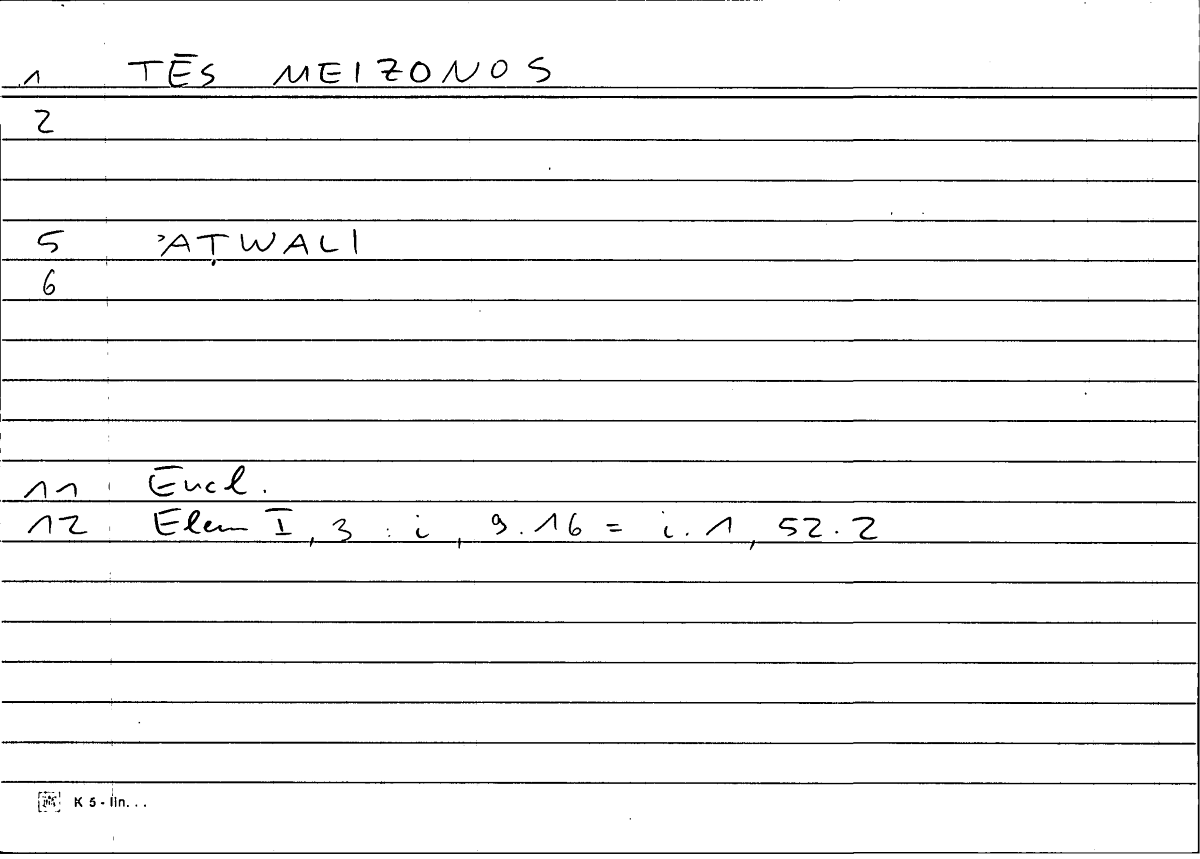 1 TĒS MEIZONOS
2
5 ʾAṬWALI
6
11 Eucl.
12 Elem I, 3 : i, 9.16 = i.1, 52.2
K 5 - lin. . .